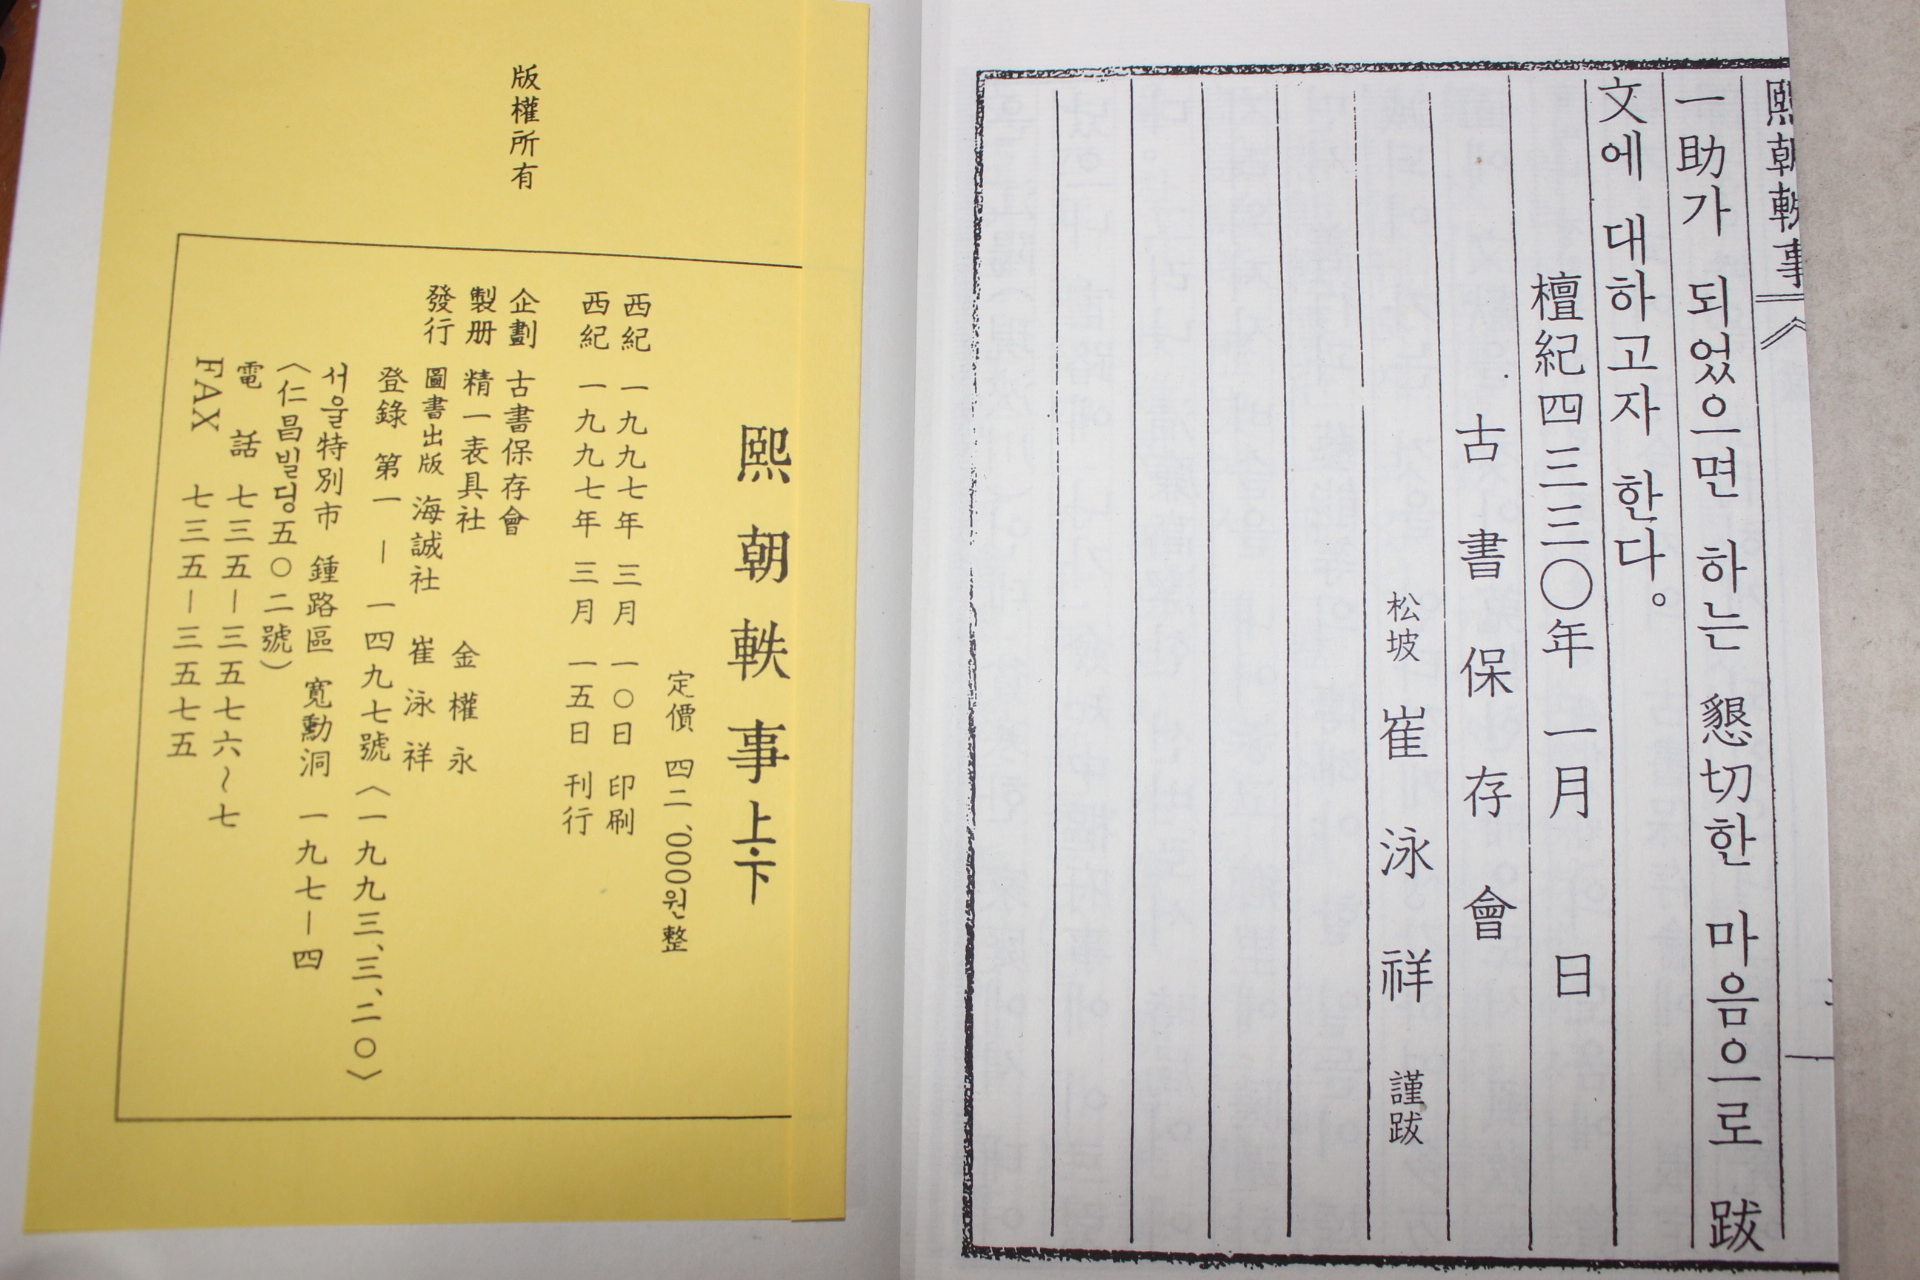 熙朝軼事
一助가 되었으면 하는 懇切한 마음으로 跋
文에 대하고자 한다。
檀紀四三三〇年 一月 日
古書保存會
松坡 崔泳祥 謹跋
版權所有
熙朝軼事 上·下
定價 四二、000원整
西紀 一九九七年 三月 一〇日 印刷
西紀 一九九七年 三月 一五日 刊行
企劃 古書保存會
製册 精一表具社 金權永
發行 圖書出版 海誠社 崔泳祥
登錄 第一 ― 一四九七號〈一九九三、三、二〇〉
서울特別市 鍾路區 寬勳洞 一九七―四
〈仁昌빌딩五〇二號〉
電話 七三五―三五七六~七
FAX 七三五―三五七五